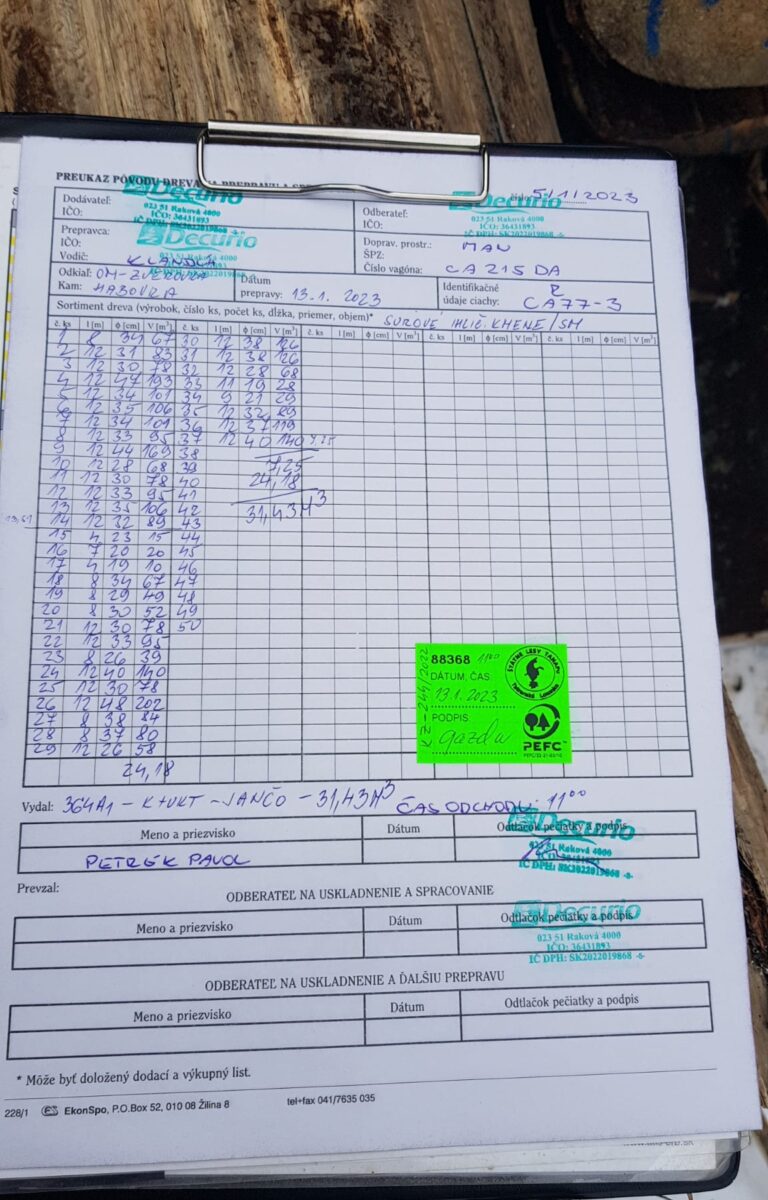 PREUKAZ PÔVODU DREVA NA PREPRAVU A
5/1/2023
Dodávateľ:
IČO:
Decurio
023 51 Raková 4000
IČO: 36431893
IČ DPH: SK2022019868 -6-
Odberateľ:
IČO:
Decurio
023 51 Raková 4000
IČO: 36431893
IČ DPH: SK2022019868 -6-
Prepravca:
IČO:
Vodič:
Decurio
023 51 Raková 4000
Doprav. prostr.: MAN
ŠPZ:
Číslo vagóna: CA 215 DA
Odkiaľ: OM-ZVEROVKA
Kam: HABOVKA
Dátum
prepravy: 13.1. 2023
Identifikačné R
údaje ciachy: CA77-3
Sortiment dreva (výrobok, číslo ks, počet ks, dĺžka, priemer, objem)* SUROVÉ IHLIČ. KMENE/SM
č. ks l [m] ϕ [cm] V [m³] č. ks l [m] ϕ [cm] V [m³] č. ks l [m] ϕ [cm] V [m³] č. ks l [m] ϕ [cm] V [m³] č. ks l [m] ϕ [cm] V [m³]
1 8 34 67 30 12 38 126
2 12 31 83 31 12 38 126
3 12 30 78 32 12 28 68
4 12 47 193 33 11 19 28
5 12 34 101 34 9 21 29
6 12 35 106 35 12 32 89
7 12 34 101 36 12 37 119
8 12 33 95 37 12 40 140 7,25
9 12 44 169 38
10 12 28 68 39 7,25
11 12 30 78 40 24,18
12 12 33 95 41
13 12 35 106 42 31,43M³
13,51 14 12 32 89 43
15 4 23 15 44
16 7 20 20 45
17 4 19 10 46
18 8 34 67 47
19 8 29 49 48
20 8 30 52 49
21 12 30 78 50
22 12 33 95
23 8 26 39
24 12 40 140
25 12 30 78
26 12 48 202
27 8 38 84
28 8 37 80
29 12 26 58
24,18
KZ-244/2022
88368 11⁰⁰
DÁTUM, ČAS
13.1.2023
PODPIS
ŠTÁTNE LESY TANAPU
PEFC
Vydal: 364A1 - K+UKT - JANČO - 31,43M³ ČAS ODCHODU: 11⁰⁰
Meno a priezvisko Dátum Odtlačok pečiatky a podpis
PETRÉK PAVOL
Decurio
023 51 Raková 4000
IČO: 36431893
IČ DPH: SK2022019868 -6-
Prevzal:
ODBERATEĽ NA USKLADNENIE A SPRACOVANIE
Meno a priezvisko Dátum Odtlačok pečiatky a podpis
Decurio
023 51 Raková 4000
IČO: 36431893
IČ DPH: SK2022019868 -6-
ODBERATEĽ NA USKLADNENIE A ĎALŠIU PREPRAVU
Meno a priezvisko Dátum Odtlačok pečiatky a podpis
* Môže byť doložený dodací a výkupný list.
228/1 EkonSpo, P.O.Box 52, 010 08 Žilina 8 tel+fax 041/7635 035